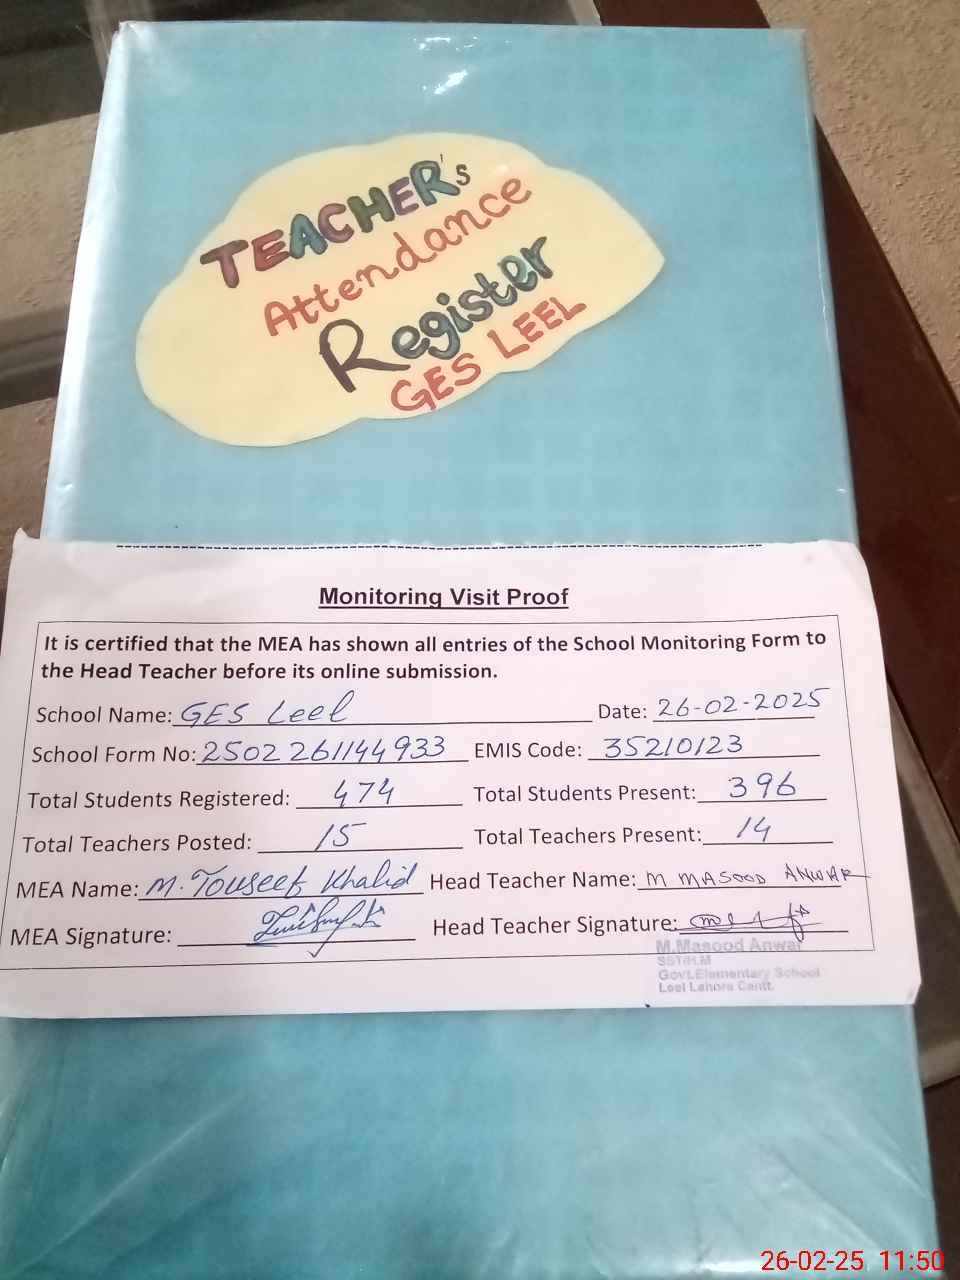 TEACHER's
Attendance
Register
GES LEEL
Monitoring Visit Proof
It is certified that the MEA has shown all entries of the School Monitoring Form to
the Head Teacher before its online submission.
School Name: GES Leel Date: 26-02-2025
School Form No: 2502 261144933 EMIS Code: 35210123
Total Students Registered: 474 Total Students Present: 396
Total Teachers Posted: 15 Total Teachers Present: 14
MEA Name: M. Touseef Khalid Head Teacher Name: M MASOOD ANWAR
MEA Signature: Head Teacher Signature:
M.Masood Anwar
SST/H.M
Govt.Elementary School
Leel Lahore Cantt.
26-02-25 11:50